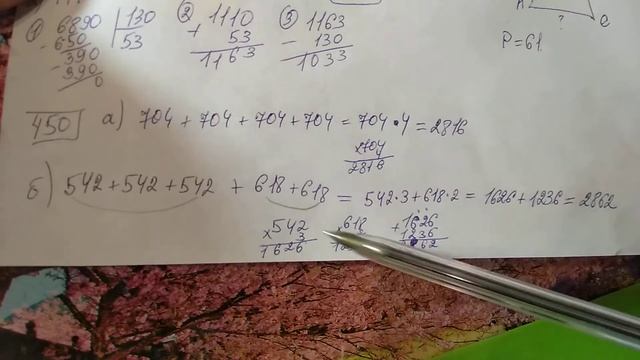 ① 6890 | 130
- 650 | 53
390
- 390
0
② 1110
+ 53
1163
③ 1163
- 130
1033
?
C
P=61
450 а) 704 + 704 + 704 + 704 = 704 • 4 = 2816
×704
2816
б) 542 + 542 + 542 + 618 + 618 = 542·3 + 618·2 = 1626 + 1236 = 2862
×542
3
1626
×618
+1626
1236